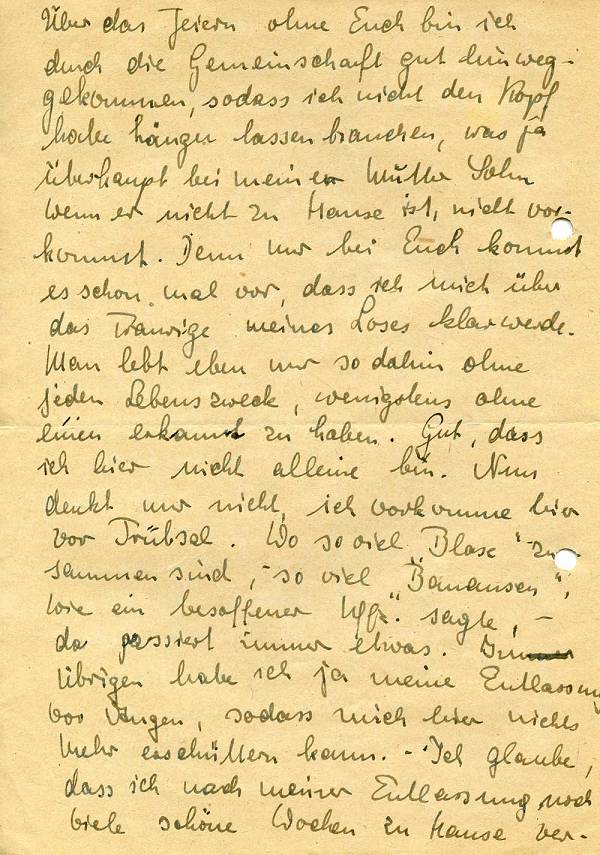 Über das Feiern ohne Euch bin ich
durch die Gemeinschaft gut hinweg-
gekommen, sodass ich nicht den Kopf
habe hängen lassen brauchen, was ja
überhaupt bei meiner Mutter Sohn
wenn er nicht zu Hause ist, nicht vor-
kommt. Denn nur bei Euch kommt
es schon mal vor, dass ich mich über
das Traurige meines Loses klar werde.
Man lebt eben nur so dahin ohne
jeden Lebenszweck, wenigstens ohne
einen erkannt zu haben. Gut, dass
ich hier nicht alleine bin. Nun
denkt nur nicht, ich vorkomme hier
vor Trübsal. Wo so viel „Blase" zu-
sammen sind, - so viel „Banausen",
wie ein besoffener Uffz. sagte, -
da passiert immer etwas. Im
Übrigen habe ich ja meine Entlassung
vor Augen, sodass mich hier nichts
mehr erschüttern kann. - Ich glaube,
dass ich nach meiner Entlassung noch
viele schöne Wochen zu Hause ver-